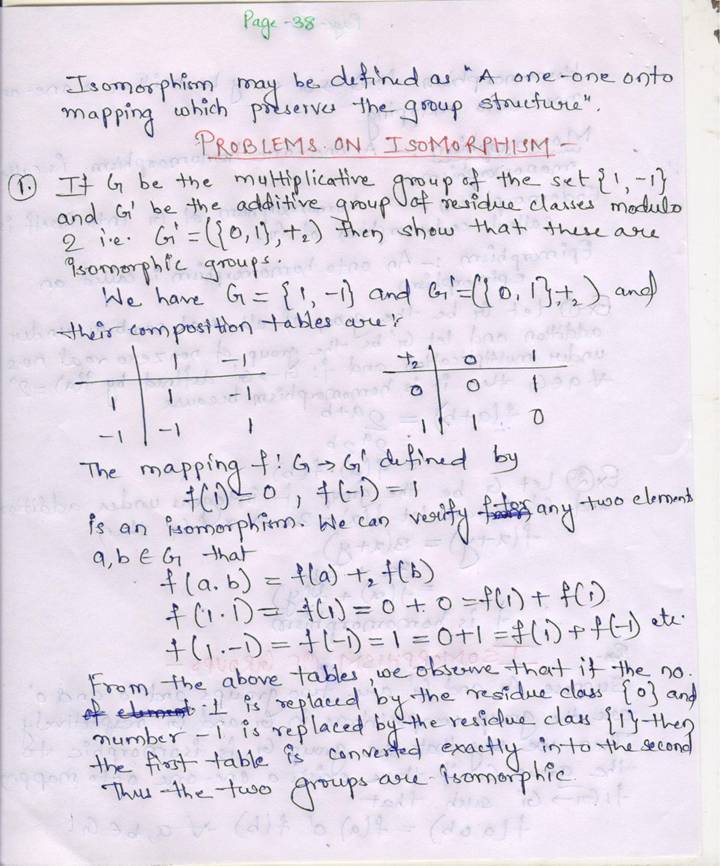 Page-38
Isomorphism may be defined as "A one-one onto
mapping which preserves the group structure".
PROBLEMS ON ISOMORPHISM -
1. If G be the multiplicative group of the set {1, -1}
and G' be the additive group of residue classes modulo
2 i.e. G' = ({0,1}, +₂) then show that these are
isomorphic groups.
We have G = {1, -1} and G' = ({0, 1}, +₂) and
their composition tables are:
. | 1 -1
1 | 1 -1
-1 | -1 1
+₂ | 0 1
0 | 0 1
1 | 1 0
The mapping f: G → G' defined by
f(1) = 0, f(-1) = 1
is an isomorphism. We can verify any two element
a, b ∈ G that
f(a.b) = f(a) +₂ f(b)
f(1.1) = f(1) = 0 + 0 = f(1) + f(1)
f(1.-1) = f(-1) = 1 = 0+1 = f(1) + f(-1) etc.
From the above tables, we observe that if the no.
it is replaced by the residue class {0} and
number -1 is replaced by the residue class {1} then
the first table is converted exactly into the second
Thus the two groups are isomorphic.